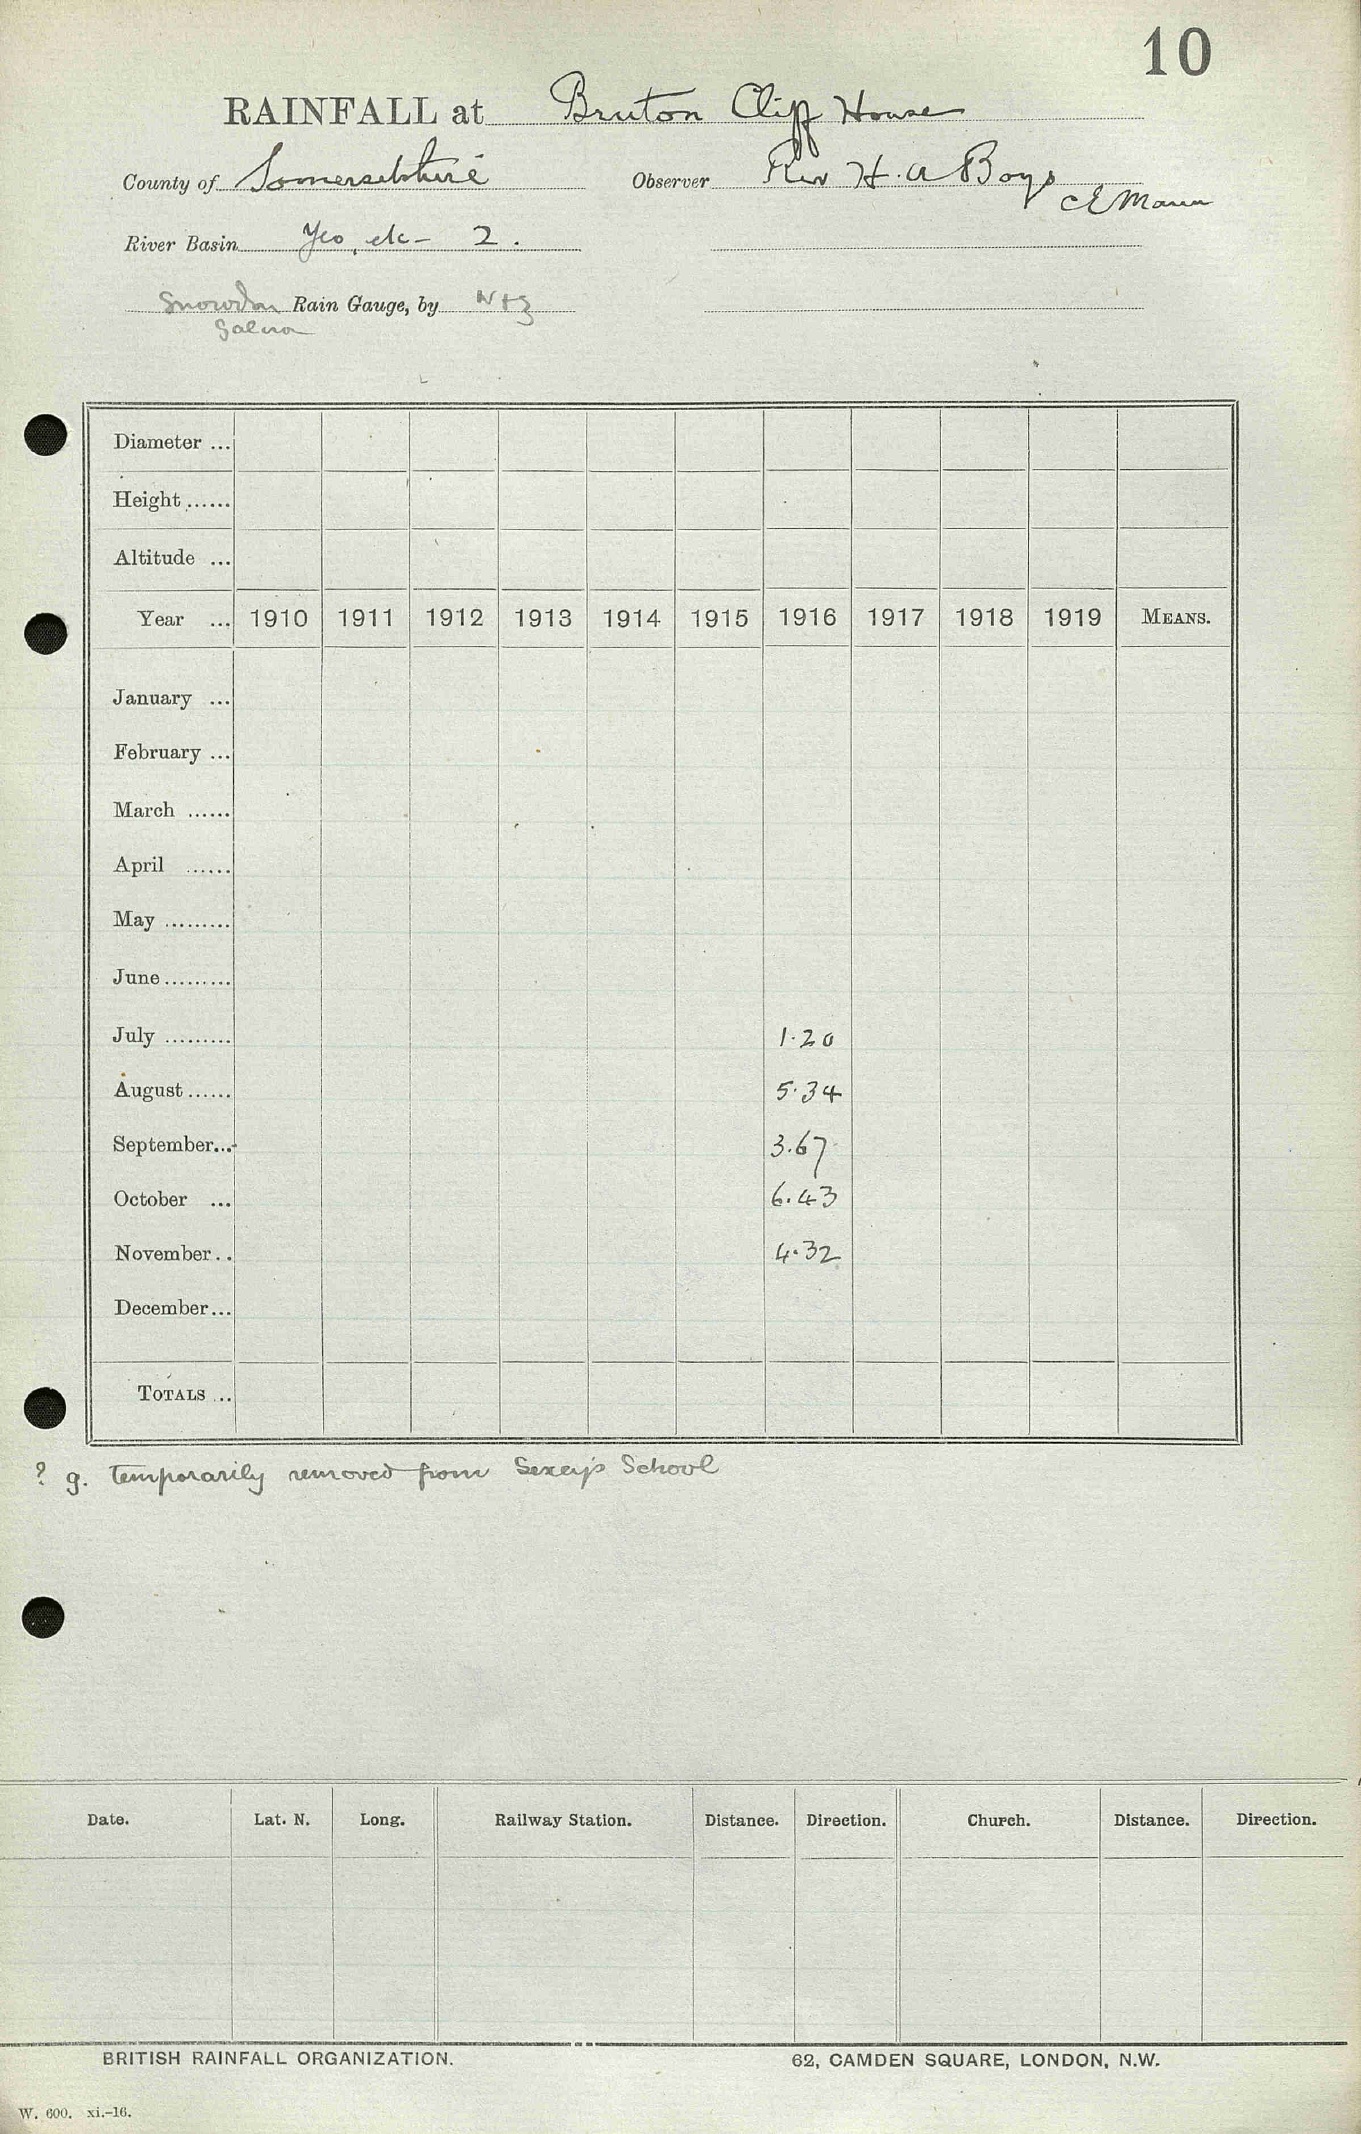 10
RAINFALL at Bruton Cliff House
County of Somersetshire Observer Rev H. A Boys
C E Mann
River Basin Yeo, etc - 2.
Snowdon Rain Gauge, by N+Z
Diameter ...
Height ......
Altitude ...
Year ... 1910 1911 1912 1913 1914 1915 1916 1917 1918 1919 MEANS.
January ...
February ...
March ......
April ......
May .........
June .........
July ......... 1.20
August ...... 5.34
September... 3.67
October ... 6.43
November .. 4.32
December...
TOTALS ...
? g. temporarily removed from Sexey's School
Date. Lat. N. Long. Railway Station. Distance. Direction. Church. Distance. Direction.
BRITISH RAINFALL ORGANIZATION. 62, CAMDEN SQUARE, LONDON, N.W.
W. 600. xi.-16.